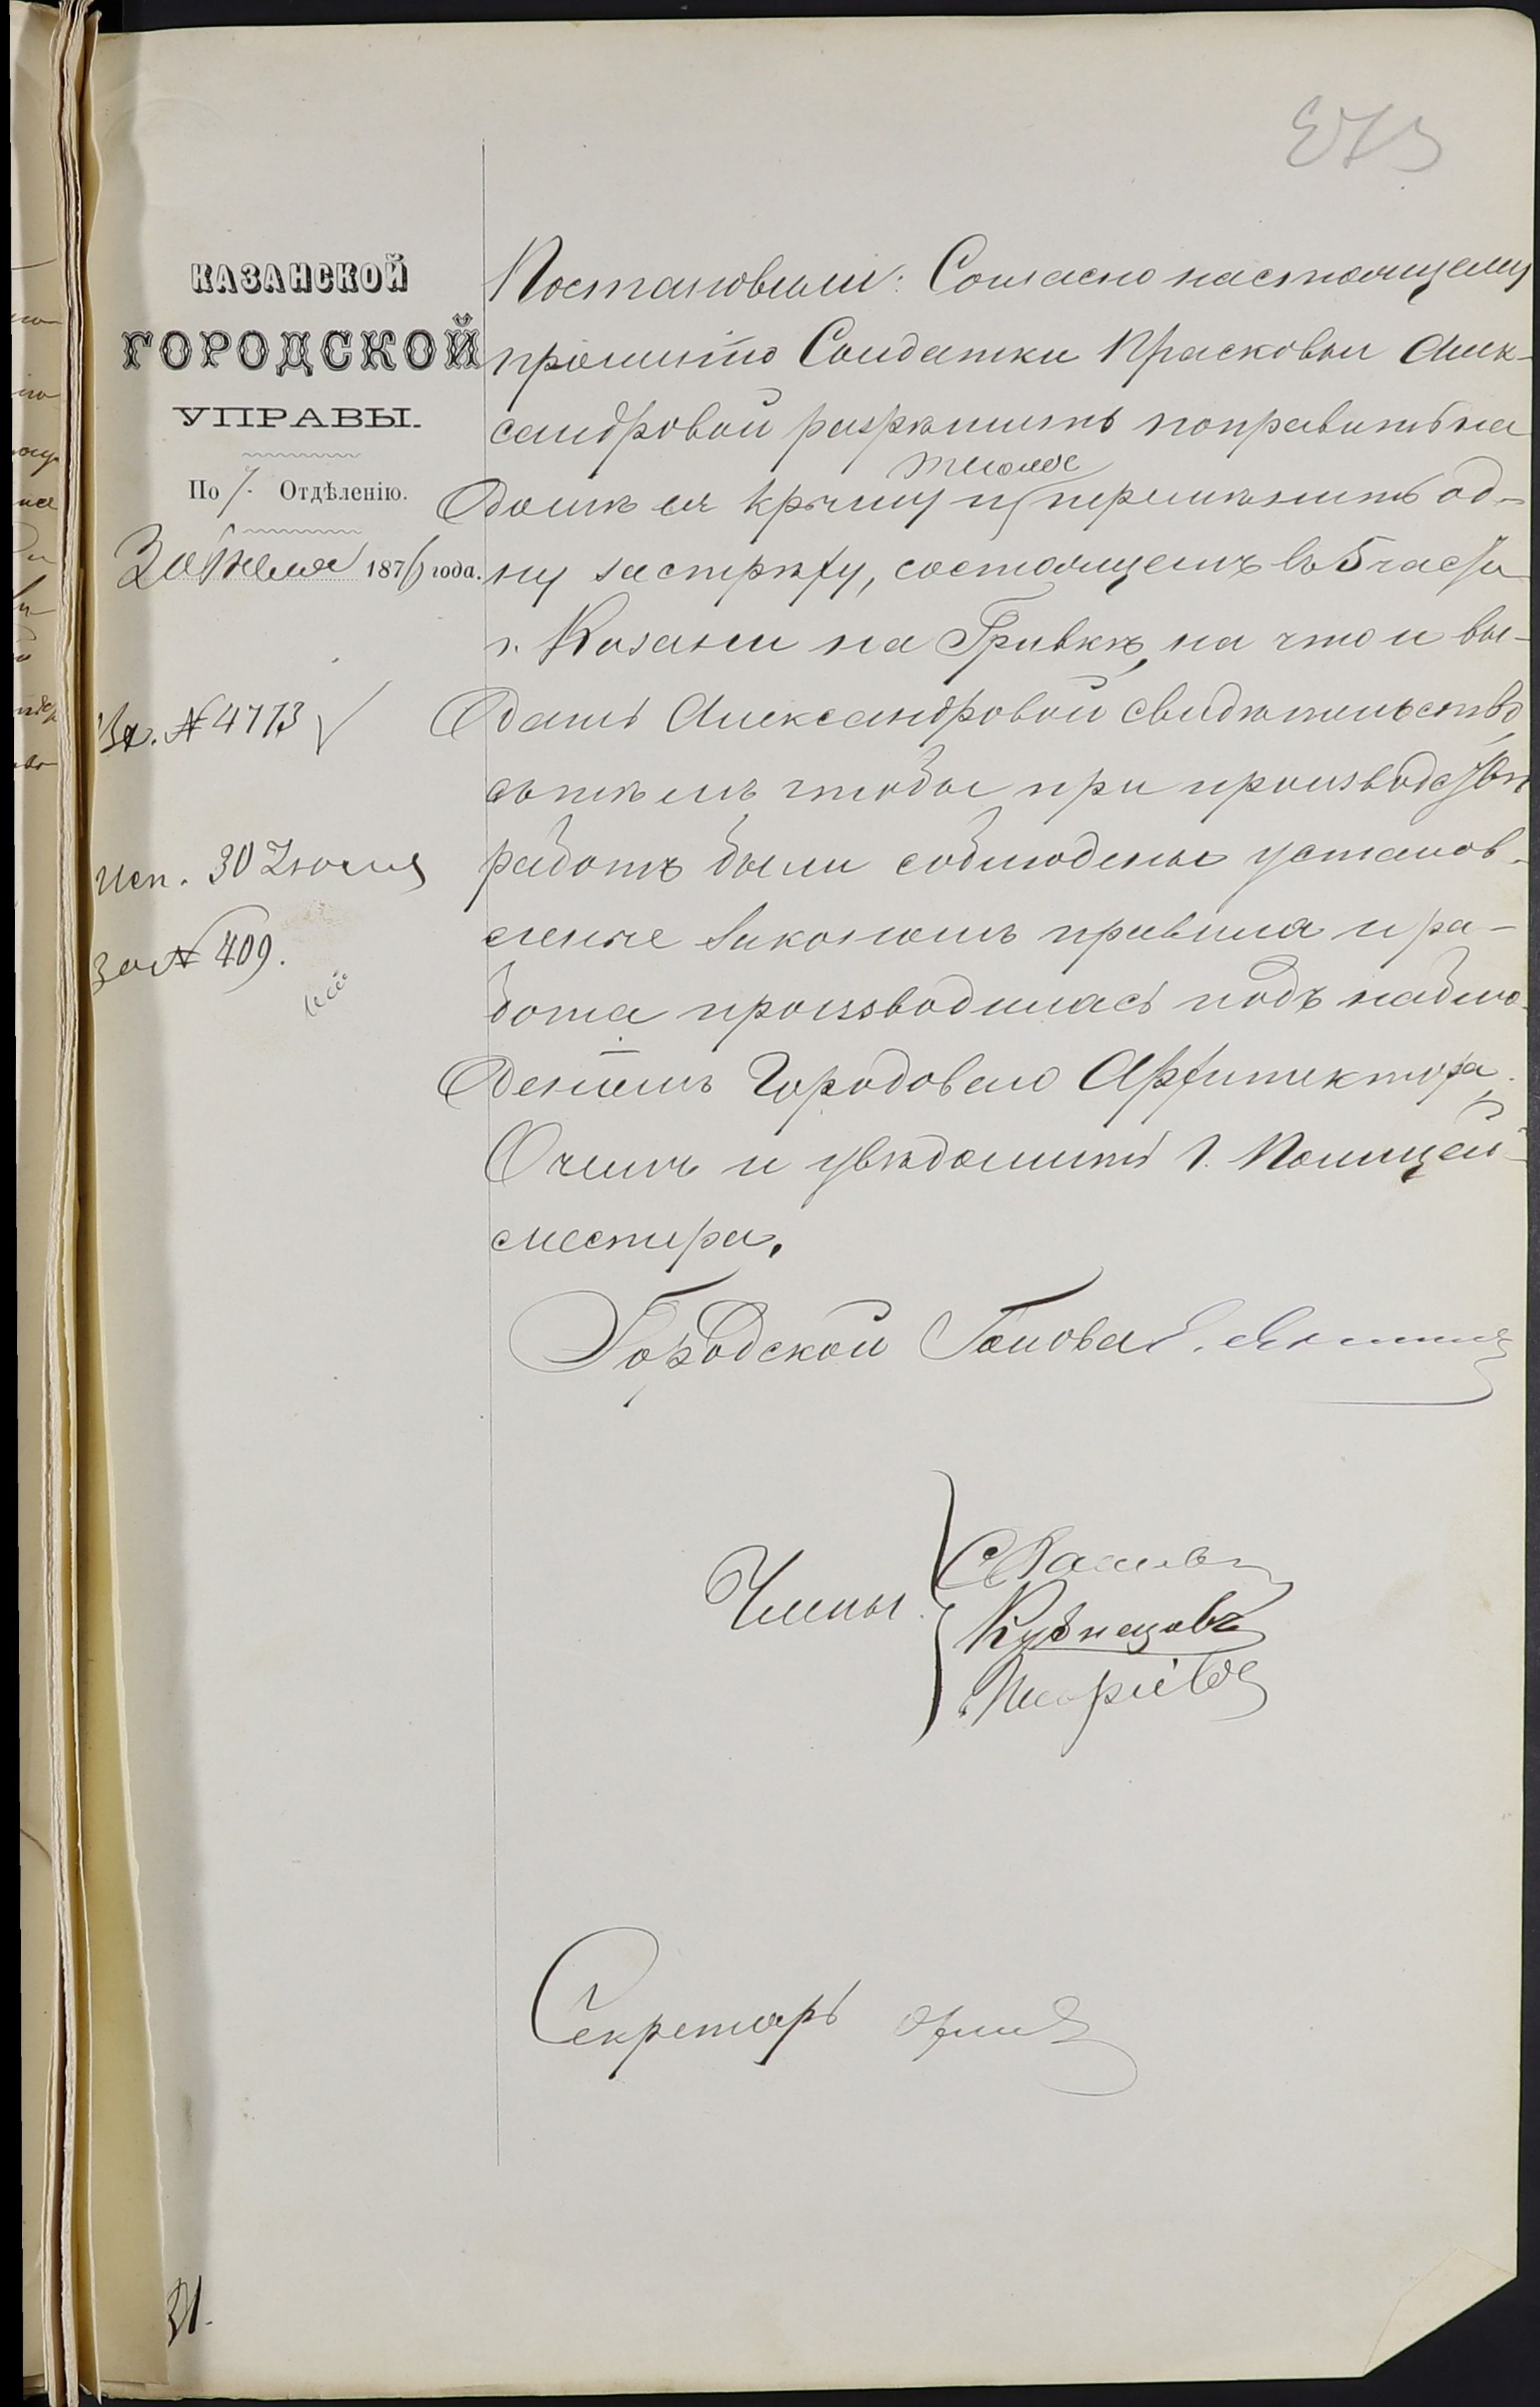 273
КАЗАНСКОЙ
ГОРОДСКОЙ
УПРАВЫ.
По 1. Отдѣленію.
30 Іюня 1876 года.
Вх. № 4773
Исп. 30 Іюня
за № 409.
Постановили: Согласно настоящему
прошенію Солдатки Прасковьи Алек-
сандровой разрѣшить поправить на
домѣ ея крышу и также перемѣнить од-
ну застрѣху, состоящемъ въ 5 части
г. Казани на Гривкѣ, на что и вы-
дать Александровой свидѣтельство,
съ тѣмъ чтобы при производствѣ
работъ были соблюдены установ-
леные закономъ правила и ра-
бота производилась подъ наблю-
деніемъ Городового Архитектора.
О чемъ и увѣдомить г. Полицей-
мейстера.
Городской Голова
Члены
Кузнецовъ
Секретарь